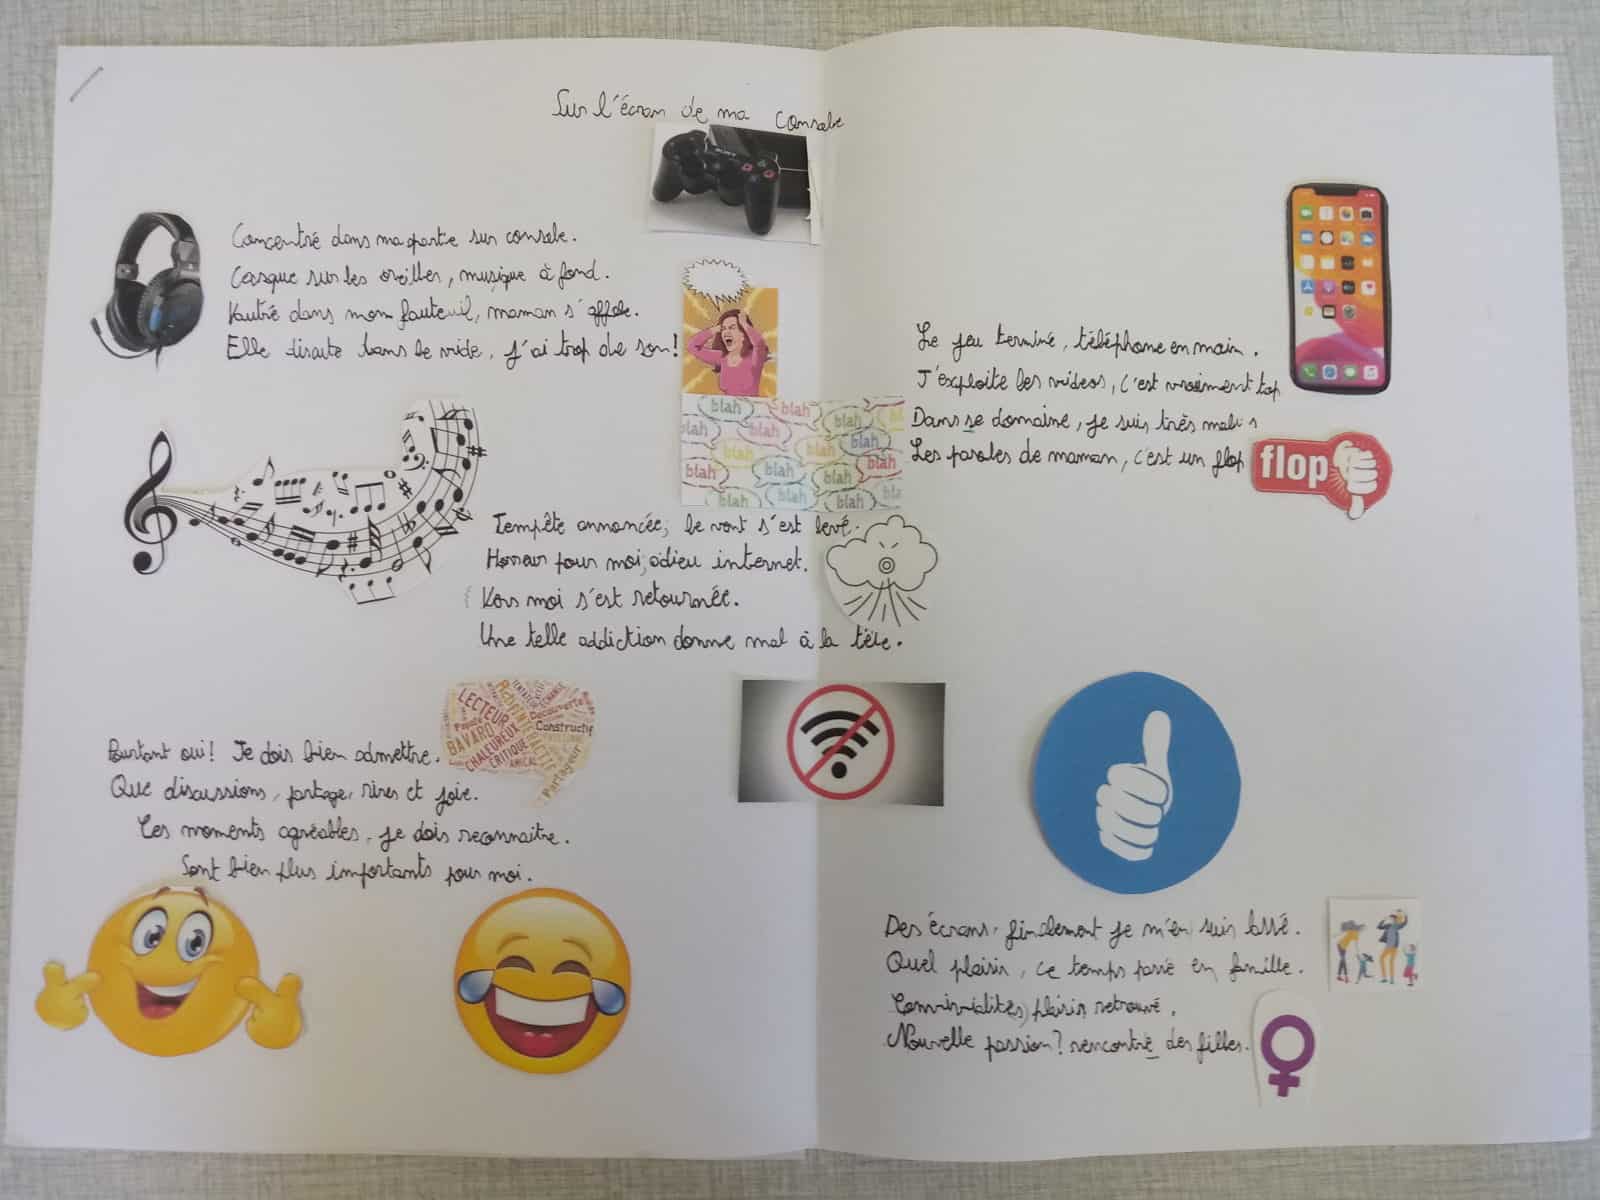 Sur l'écran de ma console
SONY
Concentré dans ma partie sur console.
Casque sur les oreilles, musique à fond.
Vautré dans mon fauteuil, maman s'affole.
Elle discute dans le vide, j'ai trop de son!
blah blah blah
blah blah blah blah
blah blah blah
blah blah blah
Le jeu terminé, téléphone en main.
J'exploite les videos, c'est vraiment top
Dans se domaine, je suis très malin
Les paroles de maman, c'est un flop
flop
Tempête annoncée, le vent s'est levé.
Horreur pour moi, adieu internet.
Vers moi s'est retournée.
Une telle addiction donne mal à la tête.
LECTEUR
Papote
BAVARD
CHALEUREUX
CRITIQUE
AMICAL
Découverte
Constructif
Partageur
Pourtant oui! Je dois bien admettre.
Que discussions, partage, rires et joie.
Ces moments agréables, je dois reconnaitre.
Sont bien plus importants pour moi.
Des écrans, finalement je m'en suis lassé.
Quel plaisir, ce temps passé en famille.
Convivialités, plaisir retrouvé.
Nouvelle passion? rencontré des filles.